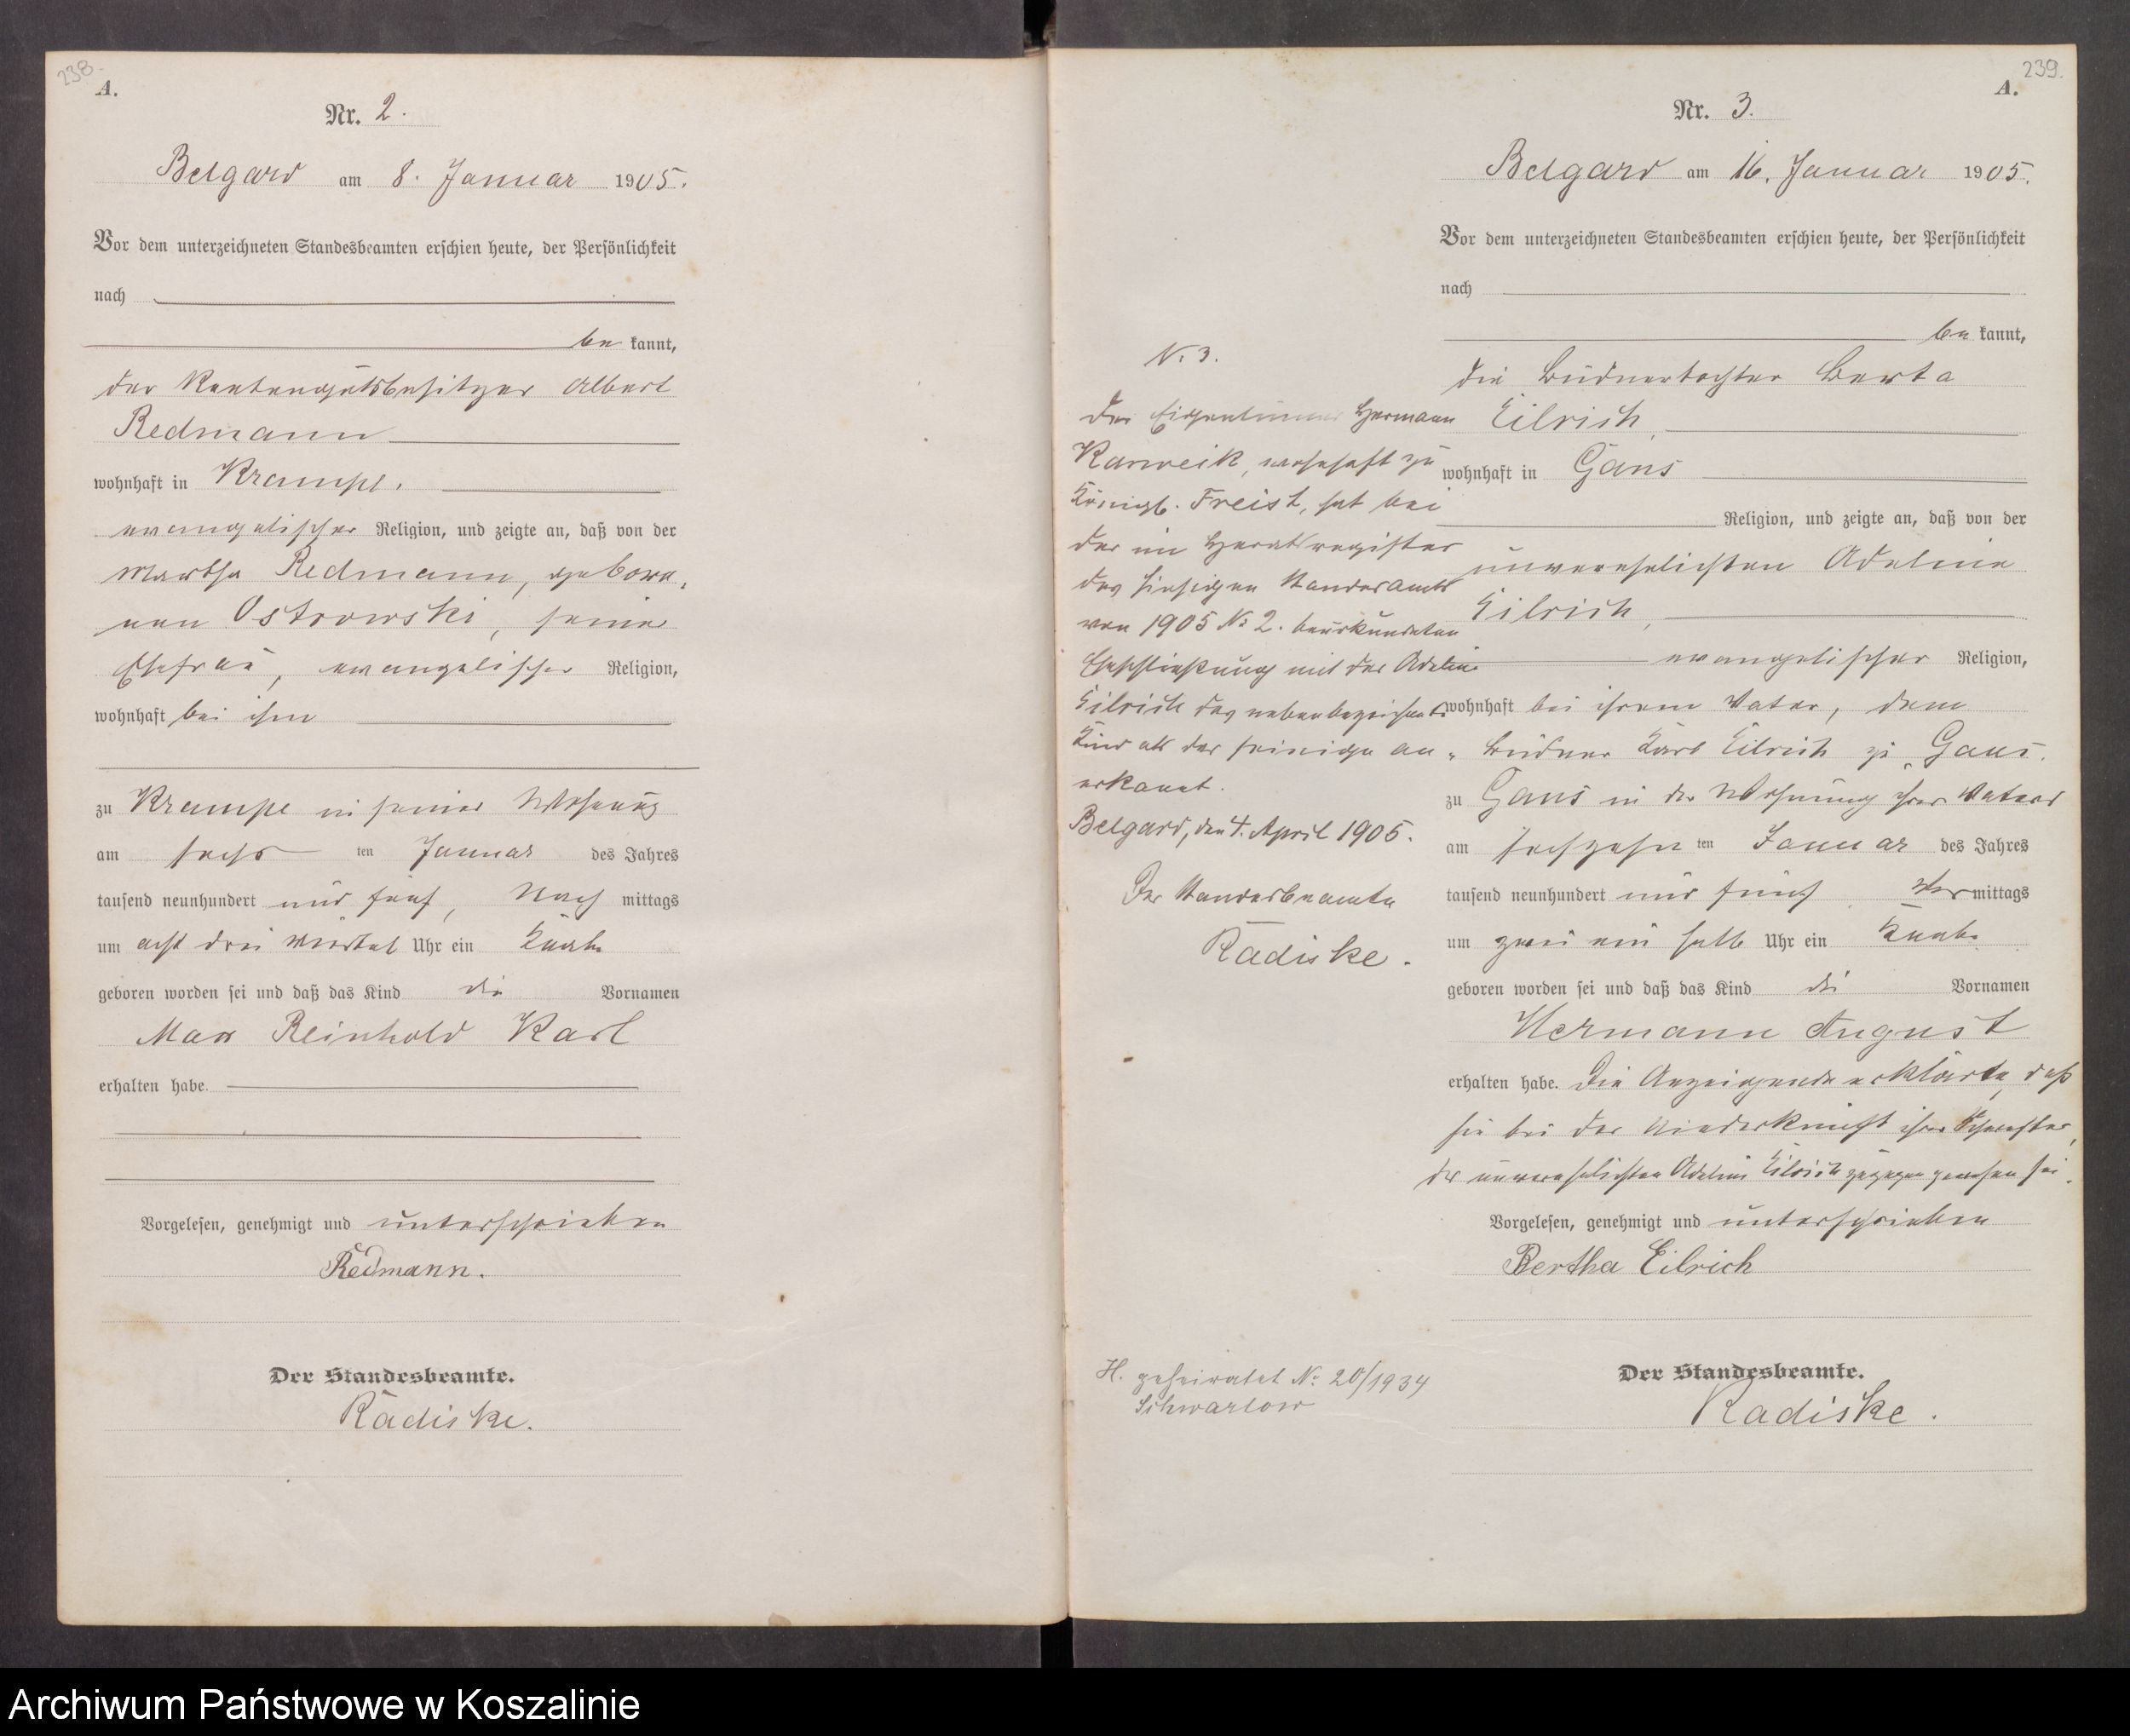 238.
A.
Nr. 2.
Belgard am 8. Januar 1905.
Vor dem unterzeichneten Standesbeamten erschien heute, der Persönlichkeit
nach
be kannt,
der Rentengutsbesitzer Albert
Redmann
wohnhaft in Krampe.
evangelischer Religion, und zeigte an, daß von der
Martha Redmann, gebore-
nen Ostrowski, seiner
Ehefrau, evangelischer Religion,
wohnhaft bei ihm
zu Krampe in seiner Wohnung
am sechs ten Januar des Jahres
tausend neunhundert und fünf, Nach mittags
um acht drei viertel Uhr ein Knabe
geboren worden sei und daß das Kind die Vornamen
Max Reinhold Karl
erhalten habe.
Vorgelesen, genehmigt und unterschrieben
Redmann.
Der Standesbeamte.
Radiske.
239.
A.
Nr. 3.
Belgard am 16. Januar 1905.
Vor dem unterzeichneten Standesbeamten erschien heute, der Persönlichkeit
nach
be kannt,
die Büdnertochter Berta
Eilrich,
wohnhaft in Gans
Religion, und zeigte an, daß von der
unverehelichten Adeline
Eilrich,
evangelischer Religion,
wohnhaft bei ihrem Vater, dem
Büdner Karl Eilrich zu Gans.
zu Gans in der Wohnung ihres Vaters
am sechzehn ten Januar des Jahres
tausend neunhundert und fünf, Vor mittags
um zwei ein halb Uhr ein Knabe
geboren worden sei und daß das Kind die Vornamen
Hermann August
erhalten habe. Die Anzeigende erklärte, daß
sie bei der Niederkunft ihrer Schwester,
der unverehelichten Adeline Eilrich zugegen gewesen sei.
Vorgelesen, genehmigt und unterschrieben
Bertha Eilrich
Der Standesbeamte.
Radiske.
N. 3.
Der Eigentümer Hermann
Karweik, wohnhaft zu
Königl. Freist, hat bei
der im Heiratsregister
des hiesigen Standesamts
von 1905 No 2. beurkundeten
Eheschließung mit der Adeline
Eilrich das nebenbezeichnete
Kind als das seinige an-
erkannt.
Belgard, den 4. April 1905.
Der Standesbeamte
Radiske.
H. geheiratet No 20/1934
Schwarlow
Archiwum Państwowe w Koszalinie